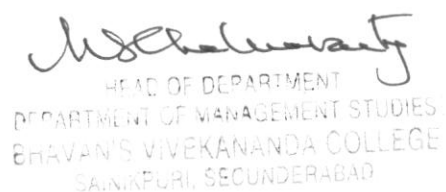 HEAD OF DEPARTMENT
DEPARTMENT OF MANAGEMENT STUDIES
BHAVAN'S VIVEKANANDA COLLEGE
SAINIKPURI, SECUNDERABAD